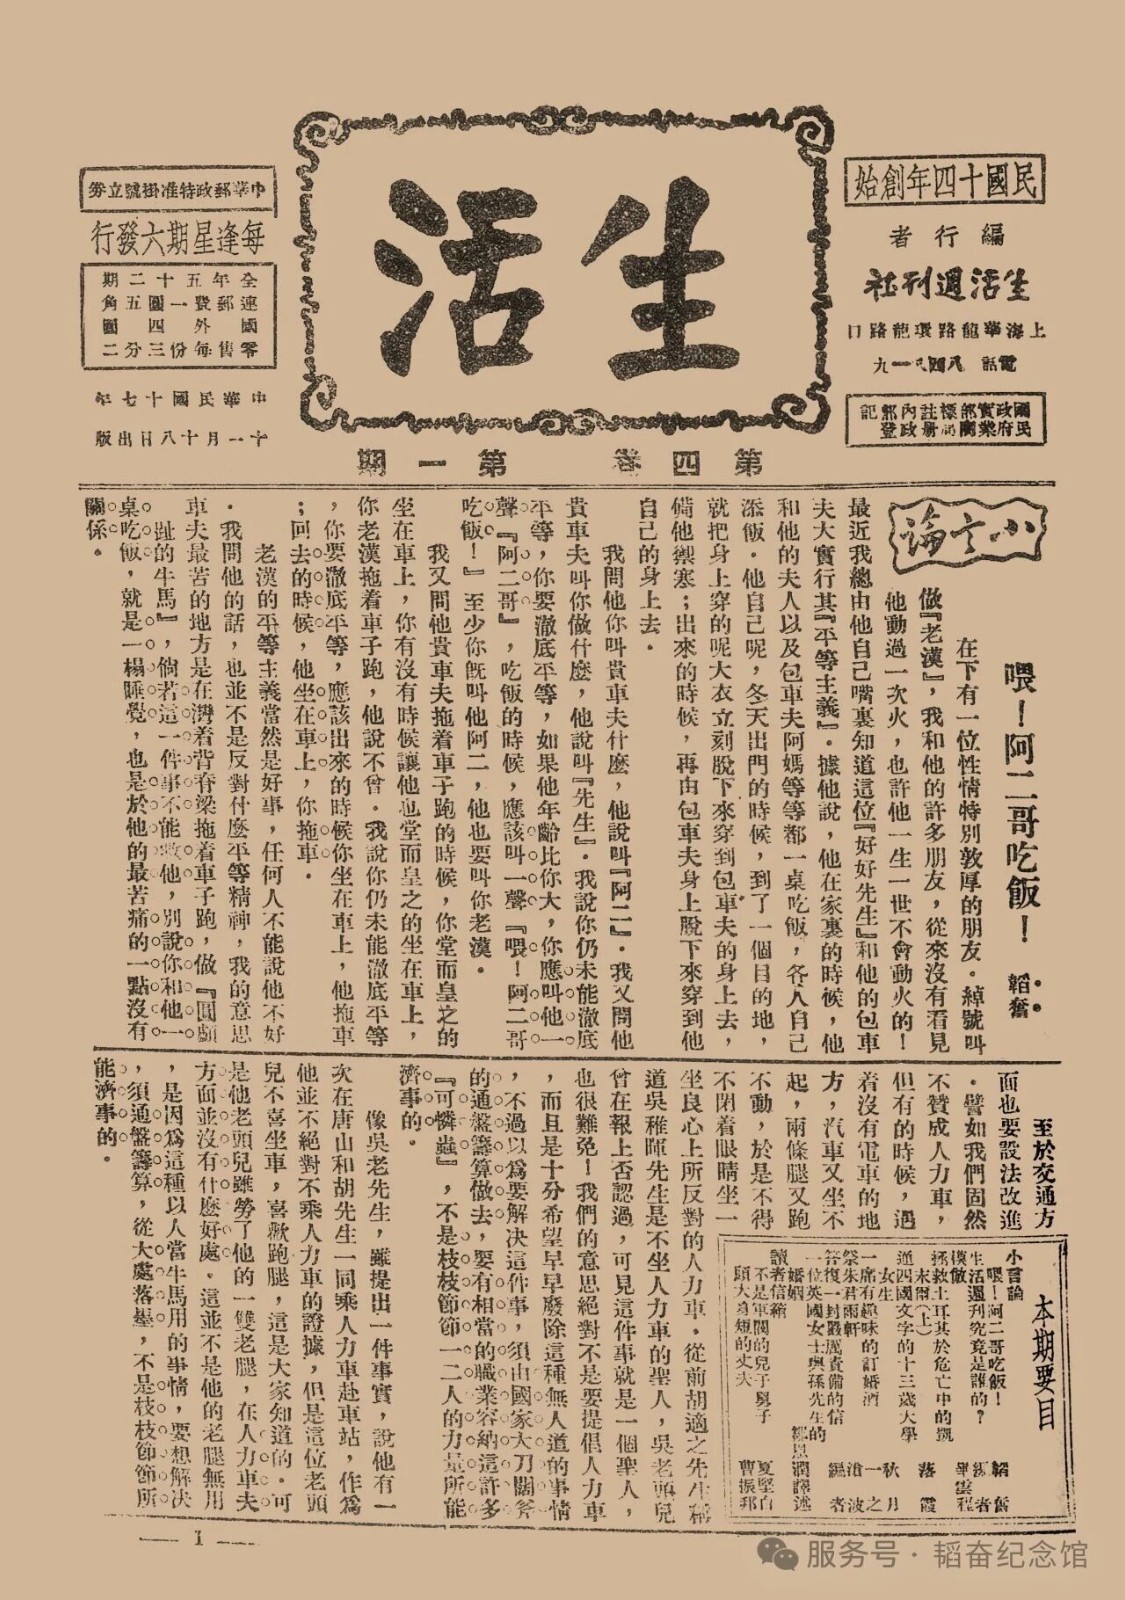 民國十四年創始
編行者
生活週刊社
上海華龍路環龍路口
國政實部標註內部記
民府業商局冊政登
生活
中華郵政特准掛號立劵
每逢星期六發行
全年五十二期
連郵費一圓五角
國外四圓
零售每份三分二
中華民國十七年
十一月十八日出版
第四卷 第一期
小言論
喂！阿二哥吃飯！ 韜奮
在下有一位性情特別敦厚的朋友．綽號叫
做『老漢』，我和他的許多朋友，從來沒有看見
他動過一次火，也許他一生一世不會動火的！
最近我總由他自己嘴裏知道這位『好好先生』和他的包車
夫大實行其『平等主義』．據他說，他在家裏的時候，他
和他的夫人以及包車夫阿媽等等都一桌吃飯，各人自己
添飯．他自己呢，冬天出門的時候，到了一個目的地，
就把身上穿的呢大衣立刻脫下來穿到包車夫的身上去，
備他禦寒；出來的時候，再由包車夫身上脫下來穿到他
自己的身上去．
我問他你叫貴車夫什麼，他說叫『阿二』．我又問他
貴車夫叫你做什麼，他說叫『先生』．我說你仍未能澈底
平等，你要澈底平等，如果他年齡比你大，你應叫他一
聲『阿二哥』，吃飯的時候，應該叫一聲『喂！阿二哥
吃飯！』至少你旣叫他阿二，他也要叫你老漢．
我又問他貴車夫拖着車子跑的時候，你堂而皇之的
坐在車上，你有沒有時候讓他也堂而皇之的坐在車上，
你老漢拖着車子跑，他說不曾．我說你仍未能澈底平等
，你要澈底平等，應該出來的時候你坐在車上，他拖車
；回去的時候，他坐在車上，你拖車．
老漢的平等主義當然是好事，任何人不能說他不好
．我問他的話，也並不是反對什麼平等精神，我的意思
車夫最苦的地方是在灣着背脊梁拖着車子跑，做『圓顱
趾的牛馬』，倘若這一件事不能救他，別說你和他一
桌吃飯，就是一榻睡覺，也是於他的最苦痛的一點沒有
關係．
至於交通方
面也要設法改進
．譬如我們固然
不贊成人力車，
但有的時候，遇
着沒有電車的地
方，汽車又坐不
起，兩條腿又跑
不動，於是不得
不閉着眼睛坐一
坐良心上所反對的人力車．從前胡適之先生稱
道吳稚暉先生是不坐人力車的聖人，吳老頭兒
曾在報上否認過，可見這件事就是一個聖人，
也很難免！我們的意思絕對不是要提倡人力車
，而且是十分希望早早廢除這種無人道的事情
，不過以爲要解決這件事，須由國家大刀闊斧
的通盤籌算做去，要有相當的職業容納這許多
『可憐蟲』，不是枝枝節節一二人的力量所能
濟事的．
像吳老先生，雖提出一件事實，說他有一
次在唐山和胡先生一同乘人力車赴車站，作爲
他並不絕對不乘人力車的證據，但是這位老頭
兒不喜坐車，喜歡跑腿，這是大家知道的．可
是他老頭兒雖勞了他的一雙老腿，在人力車夫
方面並沒有什麽好處．這並不是他的老腿無用
，是因爲這種以人當牛馬用的事情，要想解決
，須通盤籌算，從大處落墨，不是枝枝節節所
能濟事的．
本期要目
小言論
喂！阿二哥吃飯！ 韜奮
生活週刊究竟是誰的？ 編者
模倣 畢雲程
拯救土耳其於危亡中的凱
末爾（上） 落霞
通四國文字的十三歲大學
女生 秋月
一席有趣味的訂婚酒 一之
祭朱君雨軒 滄波
答復一封嚴厲責備的信 編者
一位英國女士與孫先生的
婚姻 鄒恩潤譯述
讀者信箱
不是軍閥的兒子舅子 夏堅白
頭大身短的丈夫 曹振邦
1
服务号·韬奋纪念馆